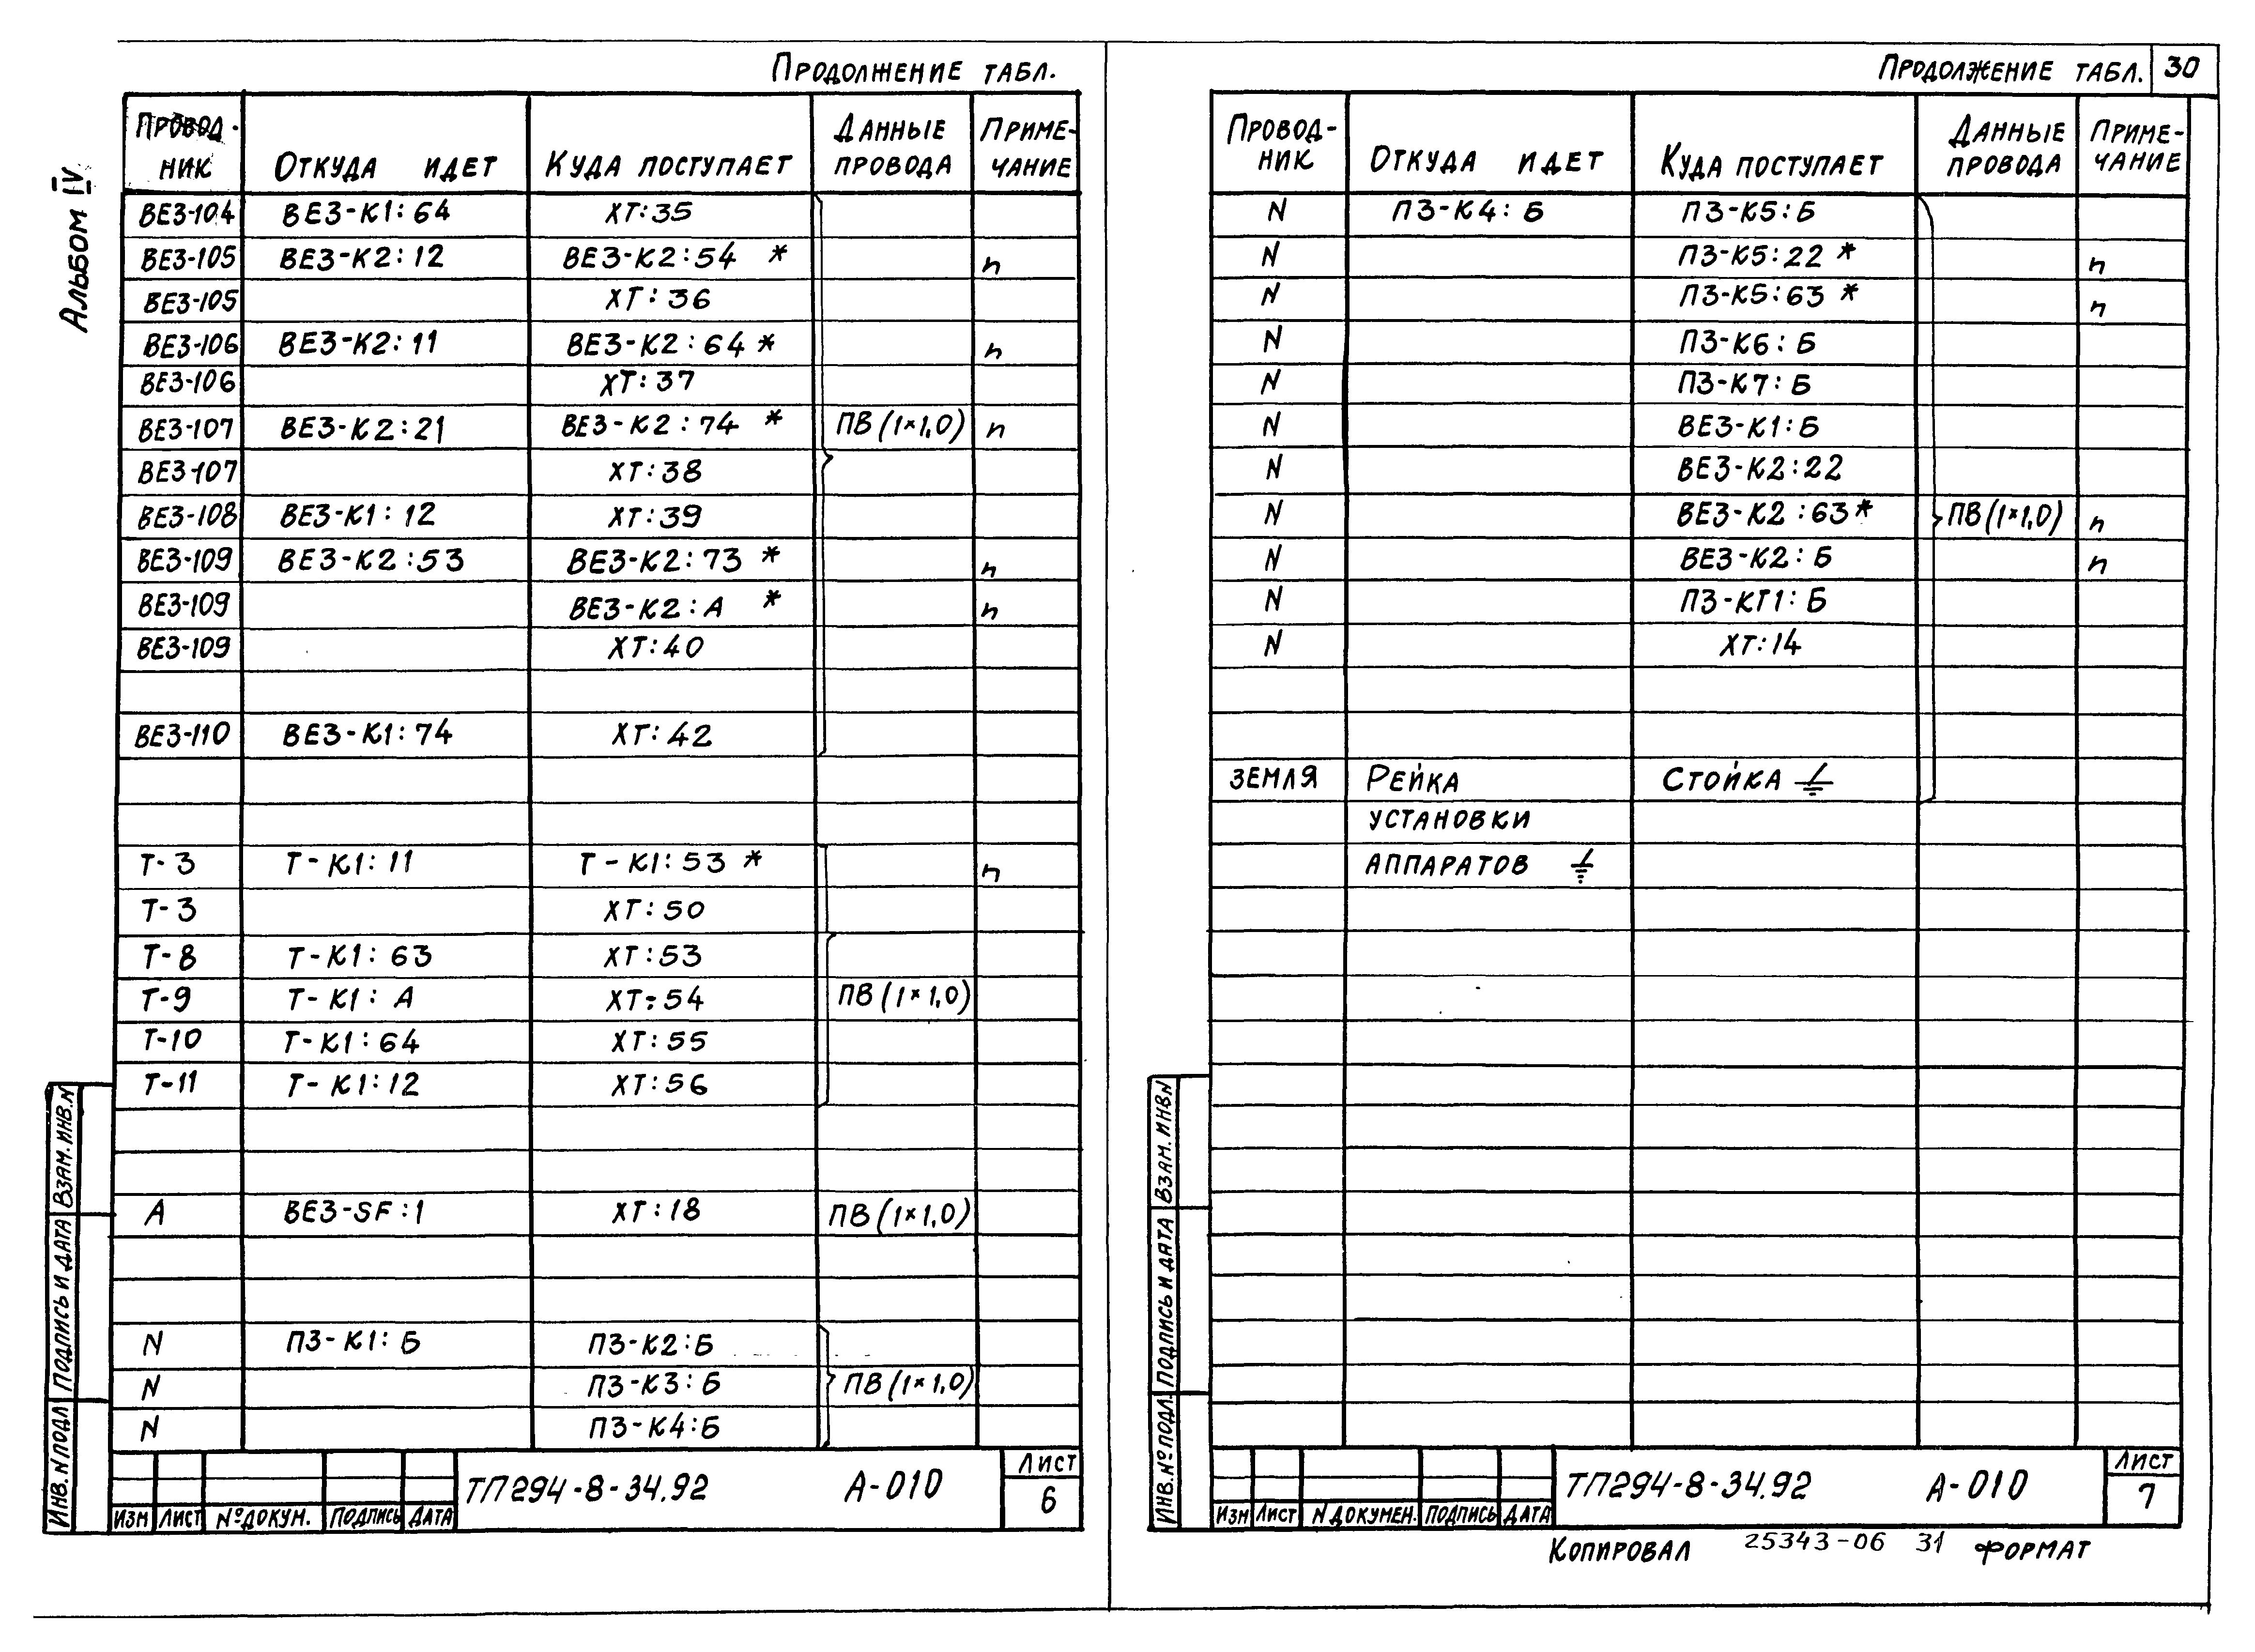 Альбом IV
Продолжение табл.
Провод-ник Откуда идет Куда поступает Данные провода Примечание
ВЕ3-104 ВЕ3-К1:64 ХТ:35
ВЕ3-105 ВЕ3-К2:12 ВЕ3-К2:54 * п
ВЕ3-105 ХТ:36
ВЕ3-106 ВЕ3-К2:11 ВЕ3-К2:64 * п
ВЕ3-106 ХТ:37
ВЕ3-107 ВЕ3-К2:21 ВЕ3-К2:74 * ПВ(1×1,0) п
ВЕ3-107 ХТ:38
ВЕ3-108 ВЕ3-К1:12 ХТ:39
ВЕ3-109 ВЕ3-К2:53 ВЕ3-К2:73 * п
ВЕ3-109 ВЕ3-К2:А * п
ВЕ3-109 ХТ:40
ВЕ3-110 ВЕ3-К1:74 ХТ:42
Т-3 Т-К1:11 Т-К1:53 * п
Т-3 ХТ:50
Т-8 Т-К1:63 ХТ:53
Т-9 Т-К1:А ХТ:54 ПВ(1×1,0)
Т-10 Т-К1:64 ХТ:55
Т-11 Т-К1:12 ХТ:56
А ВЕ3-SF:1 ХТ:18 ПВ(1×1,0)
N П3-К1:Б П3-К2:Б
N П3-К3:Б ПВ(1×1,0)
N П3-К4:Б
Взам.инв.N
Подпись и дата
Инв.N подл
Изм Лист №докум. Подпись Дата
ТП294-8-34.92 А-010
Лист
6
Продолжение табл. 30
Провод-ник Откуда идет Куда поступает Данные провода Примечание
N П3-К4:Б П3-К5:Б
N П3-К5:22 * п
N П3-К5:63 * п
N П3-К6:Б
N П3-К7:Б
N ВЕ3-К1:Б
N ВЕ3-К2:22
N ВЕ3-К2:63 * ПВ(1×1,0) п
N ВЕ3-К2:Б п
N П3-КТ1:Б
N ХТ:14
Земля Рейка Стойка ⏚
установки
аппаратов ⏚
Взам.инв.N
Подпись и дата
Инв.№подл.
Изм Лист N докумен. Подпись Дата
ТП294-8-34.92 А-010
Лист
7
Копировал 25343-06 31 Формат